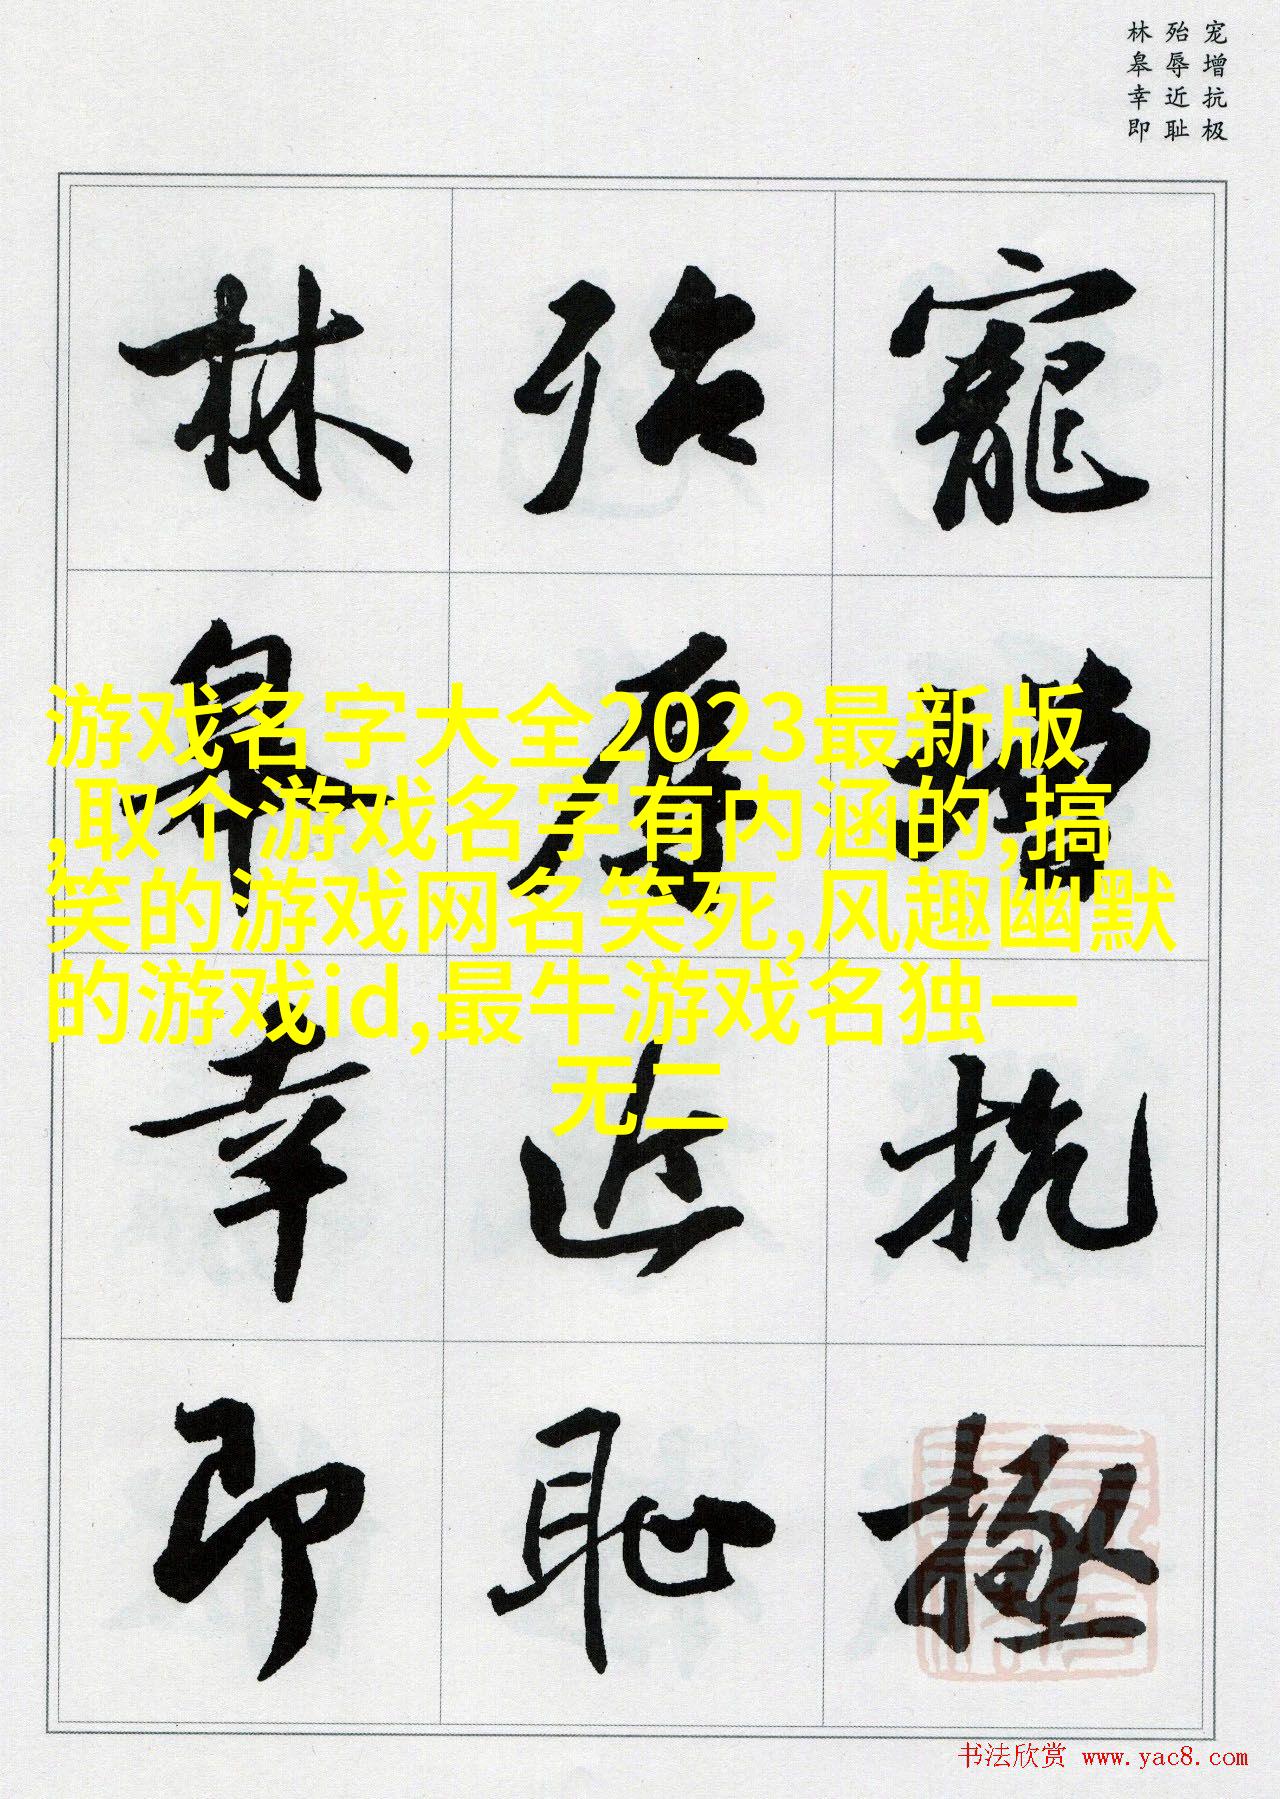 宠增抗极
殆辱近耻
林皋幸即
寵增抗極
殆辱近恥
林皋幸即
游戏名字大全2023最新版
,取个游戏名字有内涵的,搞
笑的游戏网名笑死,风趣幽默
的游戏id,最牛游戏名独一
无二
书法欣赏 www.yac8.com